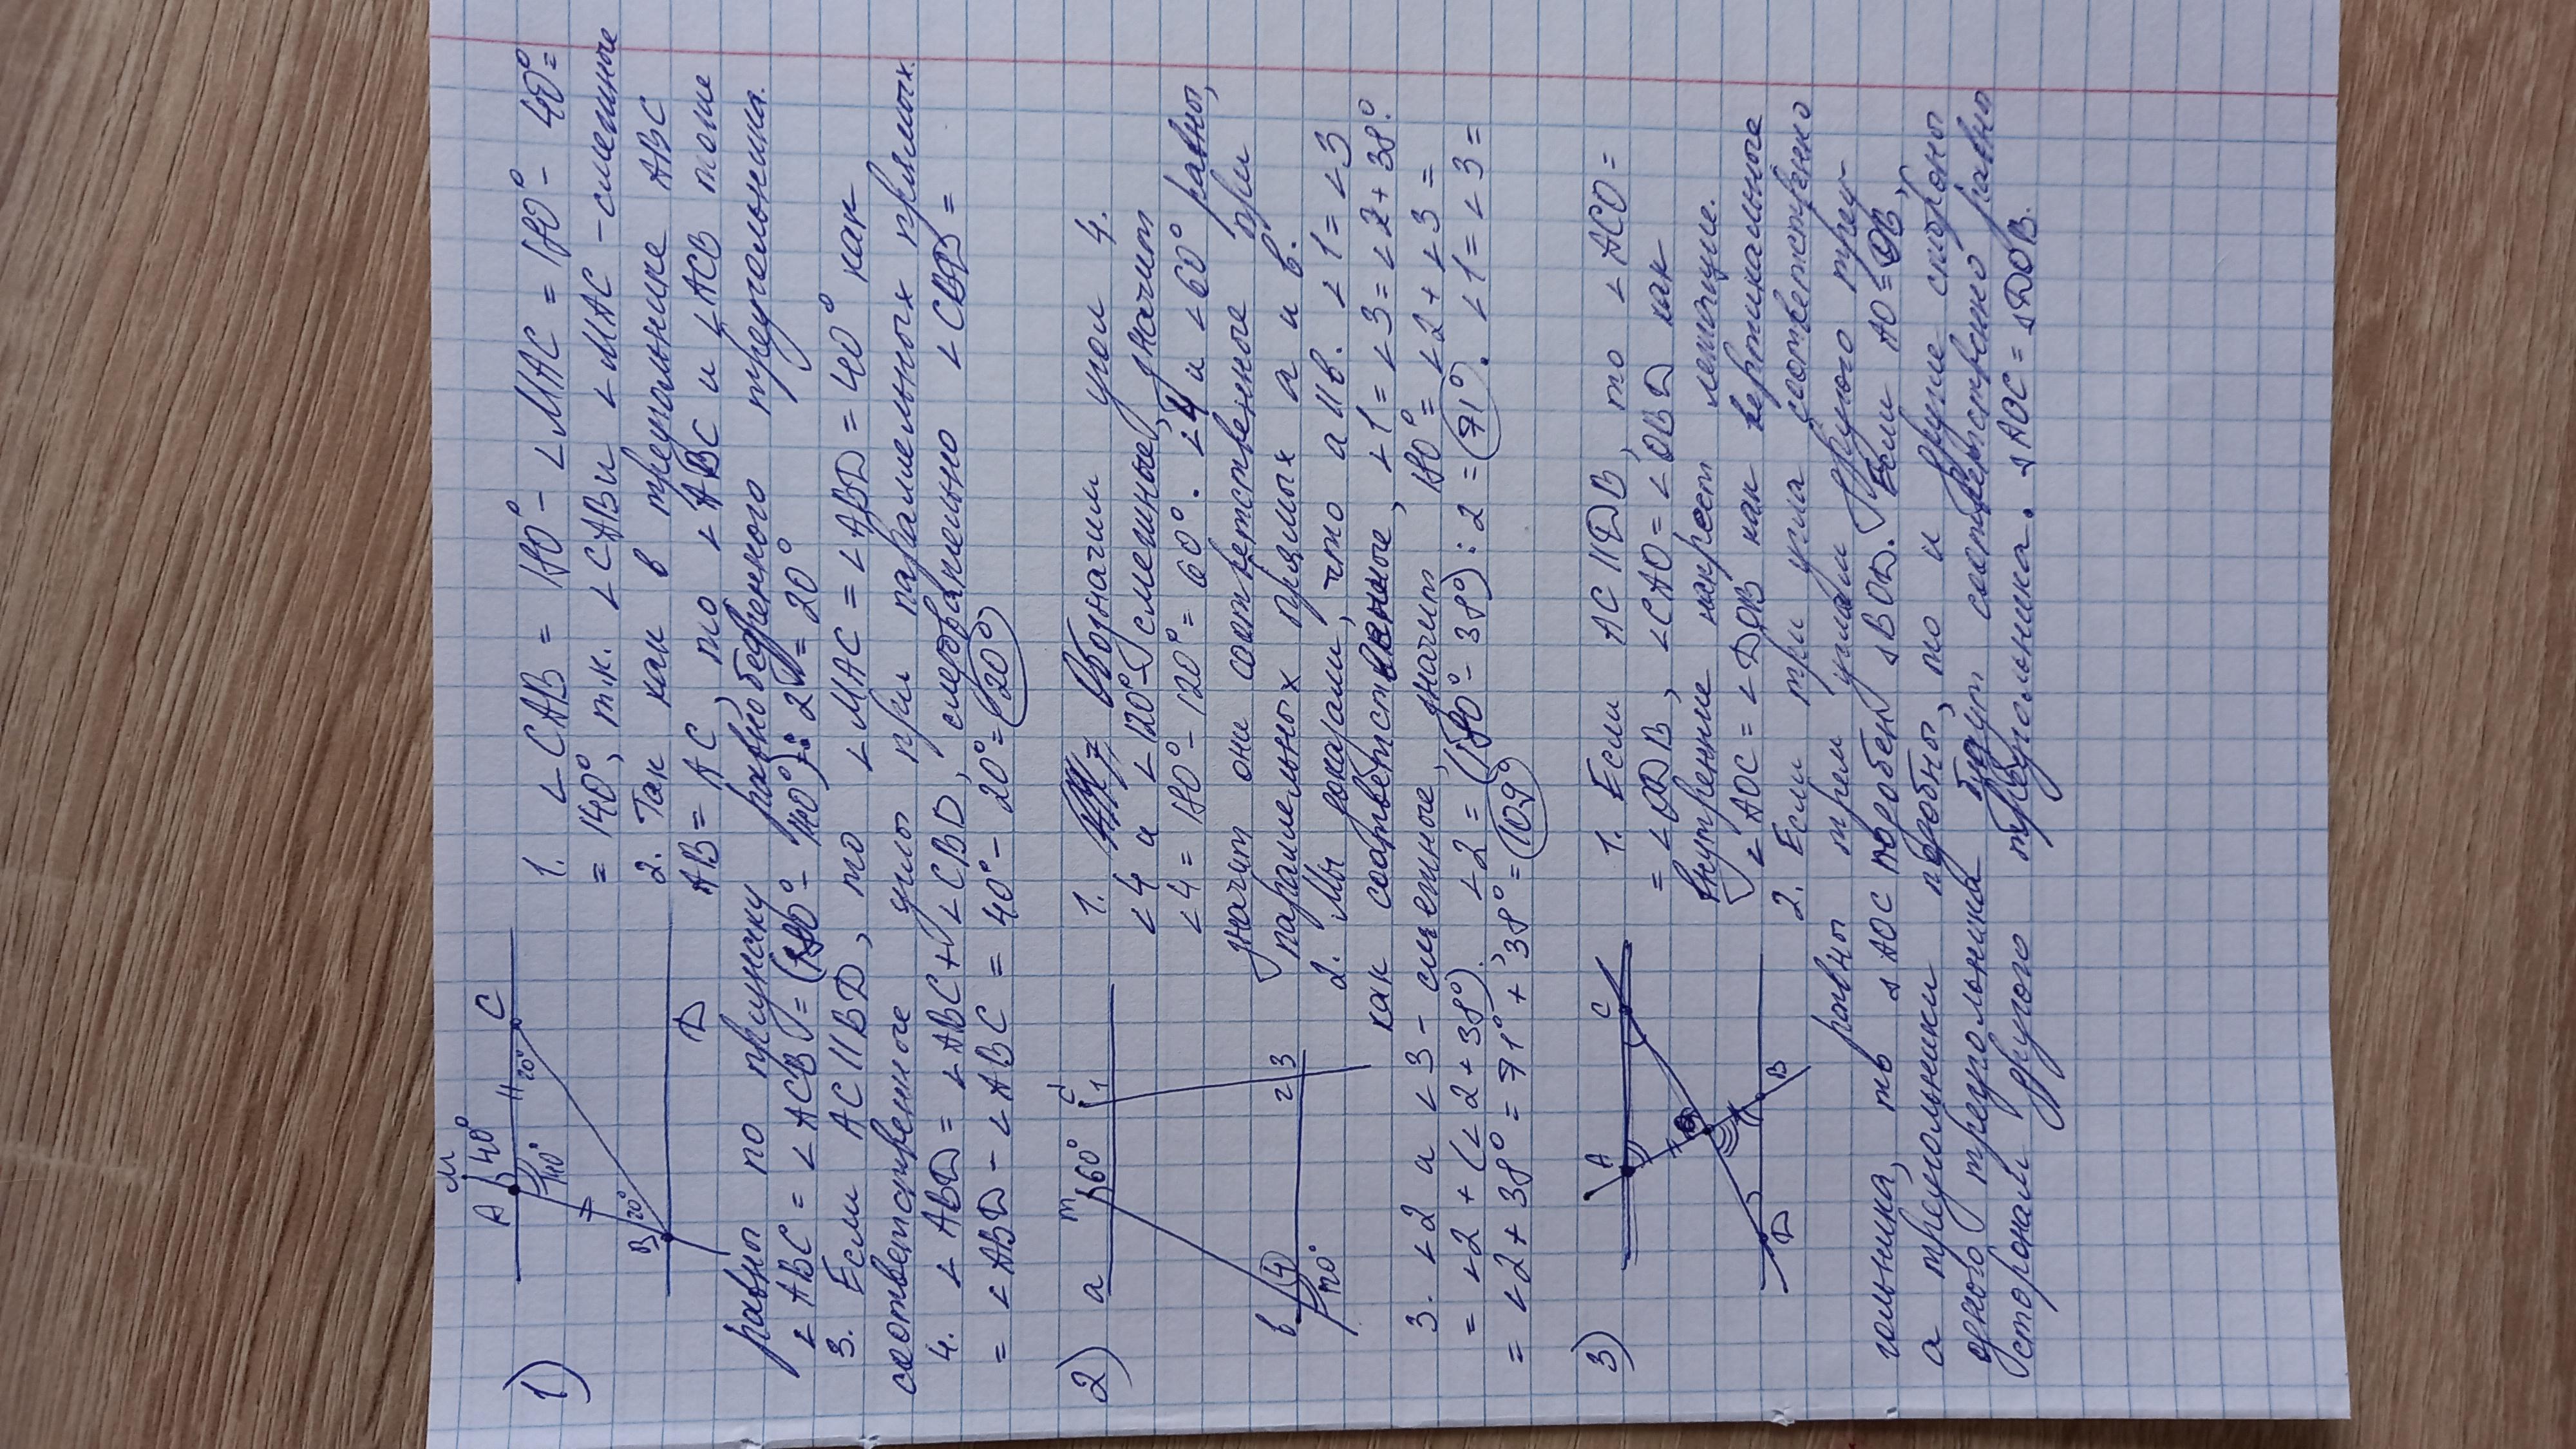 1)
A M 40° C
140° 20°
B 20°
D
1. ∠CAB = 180° - ∠MAC = 180° - 40° =
= 140°, т.к. ∠CAB и ∠MAC - смежные
2. Так как в треугольнике ABC
AB = AC, то ∠ABC и ∠ACB тоже
равны по признаку равнобедренного треугольника.
∠ABC = ∠ACB = (180° - 140°) : 2 = 20°
3. Если AC || BD, то ∠MAC = ∠ABD = 40° как
соответственные углы при параллельных прямых.
4. ∠ABD = ∠ABC + ∠CBD, следовательно ∠CBD =
= ∠ABD - ∠ABC = 40° - 20° = 20°
2)
a m 60° c 1
b 4 2 3
120°
1. Обозначим угол 4.
∠4 и ∠120° - смежные, значит
∠4 = 180° - 120° = 60°. ∠4 и ∠60° равны,
значит они соответственные при
параллельных прямых a и b.
2. Мы доказали, что a || b. ∠1 = ∠3
как соответственные, ∠1 = ∠3 = ∠2 + 38°.
3. ∠2 и ∠3 - смежные, значит 180° = ∠2 + ∠3 =
= ∠2 + (∠2 + 38°). ∠2 = (180° - 38°) : 2 = 71°. ∠1 = ∠3 =
= ∠2 + 38° = 71° + 38° = 109°
3)
A C
O
D B
1. Если AC || DB, то ∠ACO =
= ∠ODB, ∠CAO = ∠OBD как
внутренние накрест лежащие.
∠AOC = ∠DOB как вертикальные
2. Если три угла соответственно
равны трем углам другого треу-
гольника, то ▵AOC подобен ▵BOD. Если AO = OB,
а треугольники подобны, то и другие стороны
одного треугольника будут соответственно равны
сторонам другого треугольника. ▵AOC = ▵DOB.